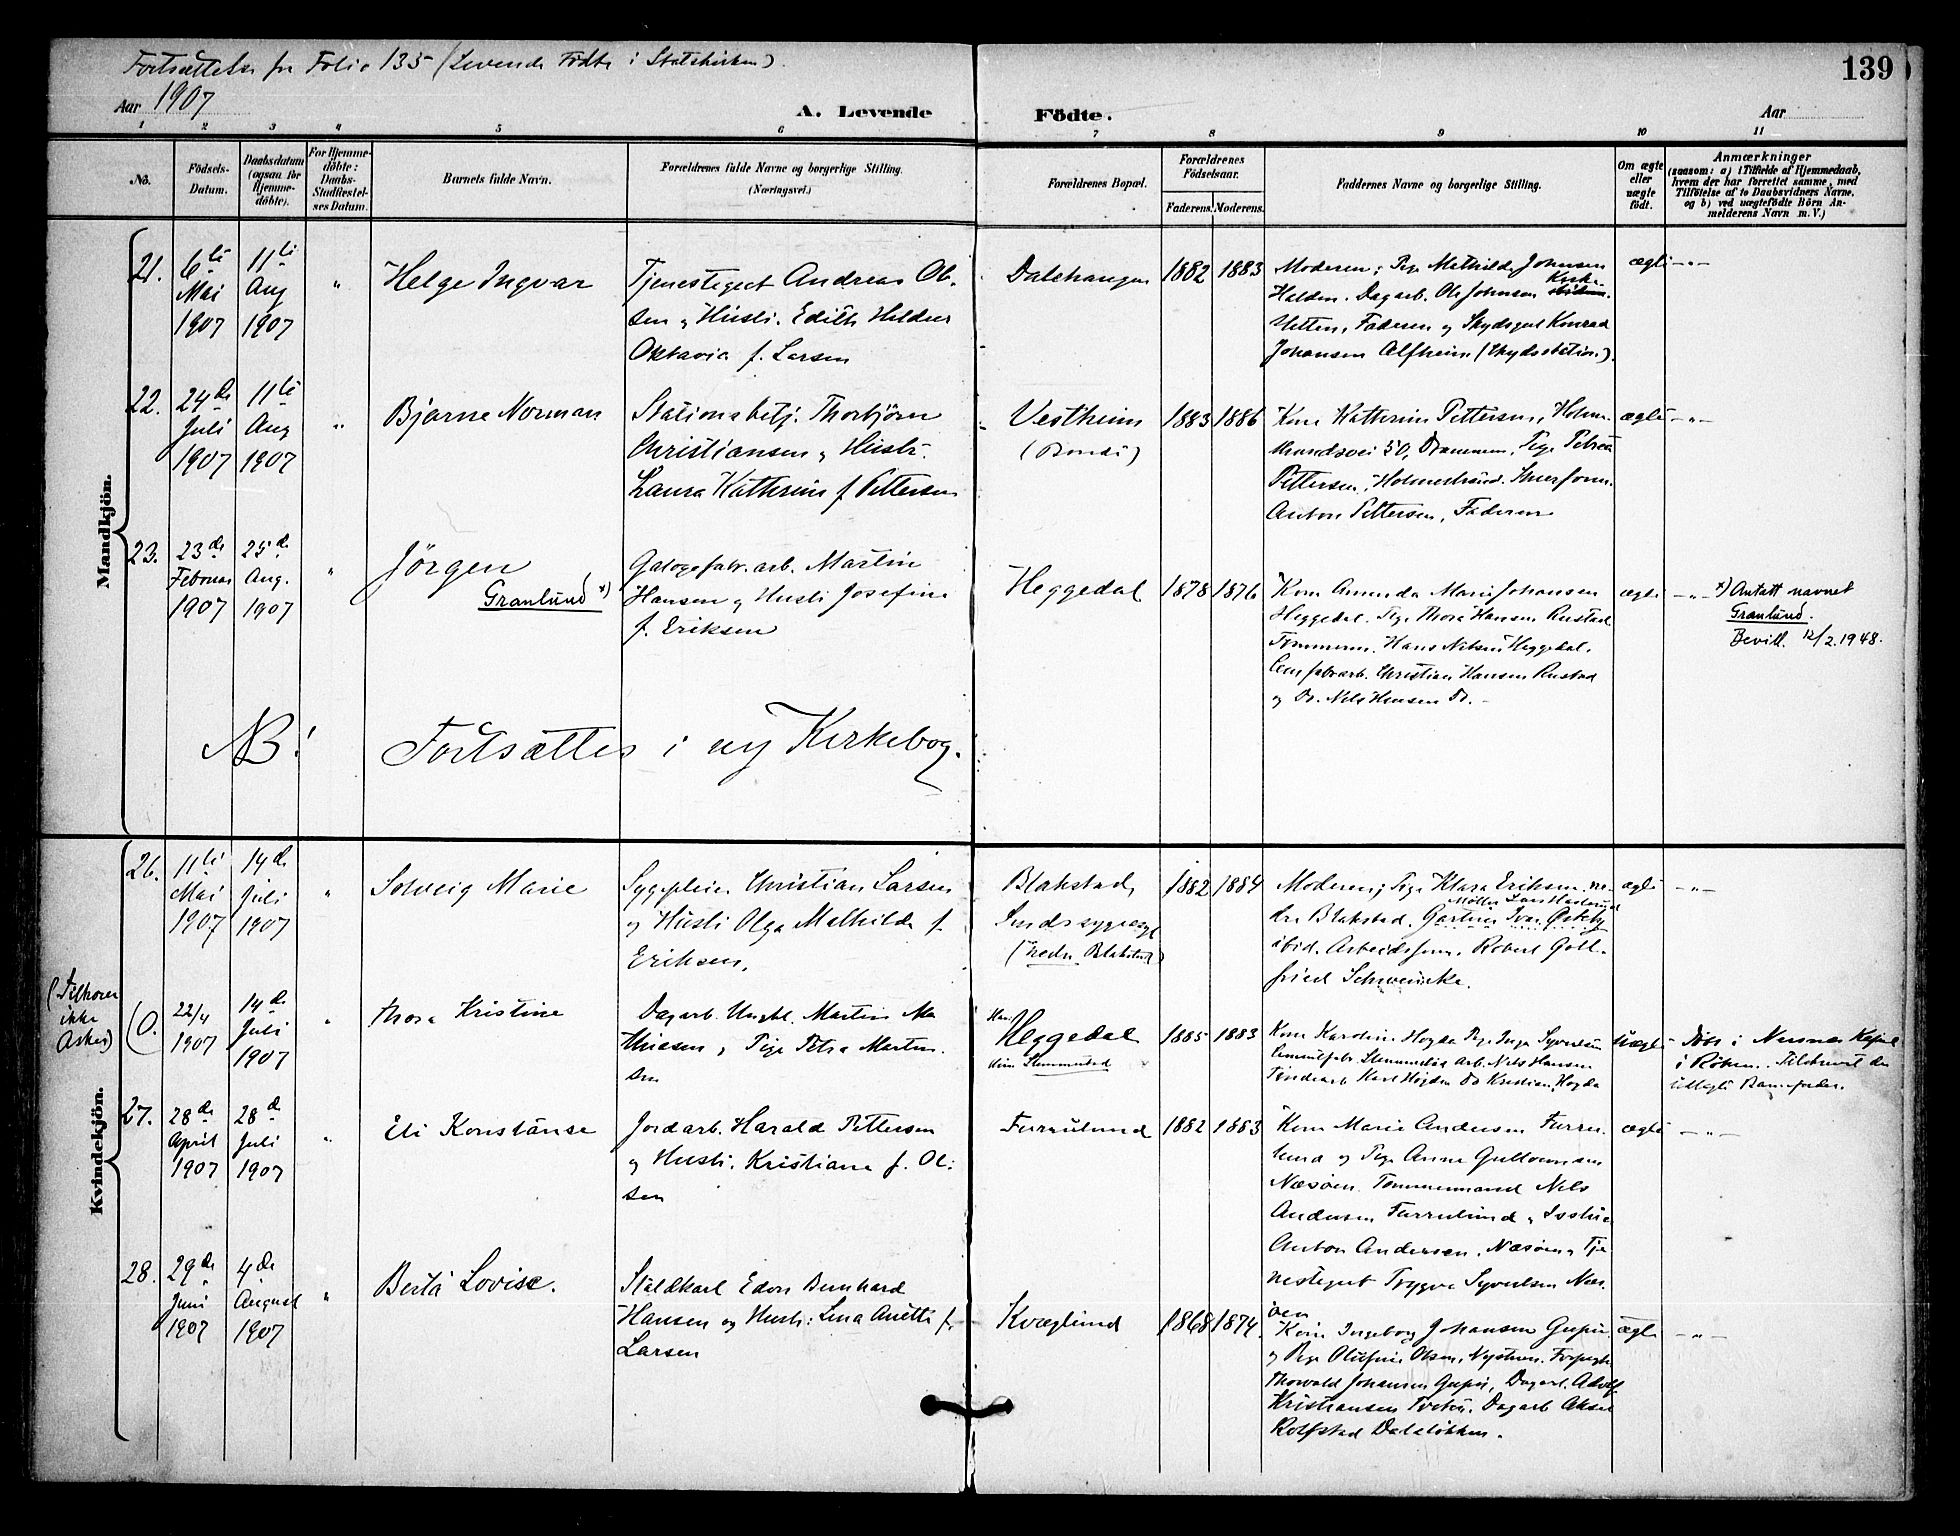 Fortsættelse fra Folio 135 (Levende Födte i Statskirken)
139
Aar 1907
A. Levende Födte.
Aar
1 2 3 4 5 6 7 8 9 10 11
No.
Födsels-
Datum.
Daabsdatum
(ogsaa for
Hjemme-
döbte).
For Hjemme-
döbte:
Daabs-
Stadfæstel-
ses Datum.
Barnets fulde Navn.
Forældrenes fulde Navne og borgerlige Stilling.
(Næringsvei.)
Forældrenes Bopæl.
Forældrenes
Födselsaar.
Faderens. Moderens.
Faddernes Navne og borgerlige Stilling.
Om ægte
eller
uægte
födt.
Anmærkninger
(saasom: a) i Tilfælde af Hjemmedaab,
hvem der har forrettet samme, med
Tilföielse af to Daabsvidners Navne,
og b) ved uægtefödte Börn An-
melderens Navn m. V.)
Mandkjön.
21.
6te
Mai
1907
11te
Aug
1907
"
Helge Ingvar
Tjenestegut Andreas Ol-
sen og Hustr. Edith
Oktavia f. Larsen
Dalehaugen
1882
1883
Moderen; Pige Mathilde Johnsen
Halden. Dagarb. Ole Johnsen
Faderen og Skydsgut Konrad
Johansen Alfheim (Skydsstation).
ægte
- " -
22.
24de
Juli
1907
11te
Aug
1907
"
Bjarne Norman
Stationsbetj. Thorbjörn
Christiansen og Hustr.
Laura Katherine f Pettersen
Vestheim
(Bondi)
1883
1886
Kone Katherine Pettersen, Holme-
strandsvei 50, Drammen, Pige Petrea
Pettersen, Holmestrand.
Anton Pettersen, Faderen
ægte
- " -
23.
23de
Februar
1907
25de
Aug.
1907
"
Jörgen
Granlund x)
Galogefabr. arb. Martin
Hansen og Hustr Josefine
f. Eriksen
Heggedal
1878
1876
Kone Amunda Marie Johansen
Heggedal. Pige Thora Hansen Rustad
Tömmerm. Hans Nilsen Heggedal.
Christian Hansen Rustad
og Do. Nels Hansen Do. -
ægte
- " -
x) Antatt navnet
Granlund.
Bevill. 12/2. 1948.
NB! Fortsættes i ny Kirkebog.
Kvindekjön.
26.
11te
Mai
1907
14de
Juli
1907
"
Solveig Marie
Sygepleier Christian Larsen
og Hustr Olga Mathilde f.
Eriksen,
Blakstad,
Sindssygeasyl
(nedre Blakstad)
1882
1884
Moderen; Pige Klara Eriksen ne-
dre Blakstad. Gartner Ivar
ibid. Arbeidsform. Robert Gott-
fried Schweincke.
ægte
- " -
(Tilhører
ikke
Asker)
(O.
22/4
1907
14de
Juli
1907
"
Thora Kristine
Dagarb. Ungkl. Martin Ma-
thiesen og Pige Petra Marten-
sen
Han:
Heggedal
1885
1883
Kone Karoline Hogda Pige Inga Syvertsen
arb. Nels Hansen
Karl Hogden Do Kristian Hogda
Uægte
Döbt i Næsnes Kapel
i Röken. Tilstaaet den
udlagte Barnefader.
27.
28de
April
1907
28de
Juli
1907
"
Eli Konstanse
Jordarb. Harald Pettersen
og Hustr. Kristiane f. Ol-
sen
Furrulund
1882
1883
Kone Marie Andersen Furru-
lund og Pige Anna Gulbrandsen
Næsöen. Tömmermand Nels
Andersen Furrulund,
Anton Andersen, Næsöen, Tje-
nestegut Trygve Syvertsen Næs-
öen
ægte
- " -
28.
29de
Juni
1907
4de
August
1907
"
Berta Lovise.
Staldkarl Edon Bernhard
Hansen og Hustr: Lina Anette f.
Larsen
Kvæglund
1868
1874.
Kone Ingeborg Johansen
og Pige Olufine Olsen, Nystuen.
Thorvald Johansen Dagarb. Adolf
Kristiansen Dagarb Aksel
Rolfstad Dalsløkken.
ægte
- " -